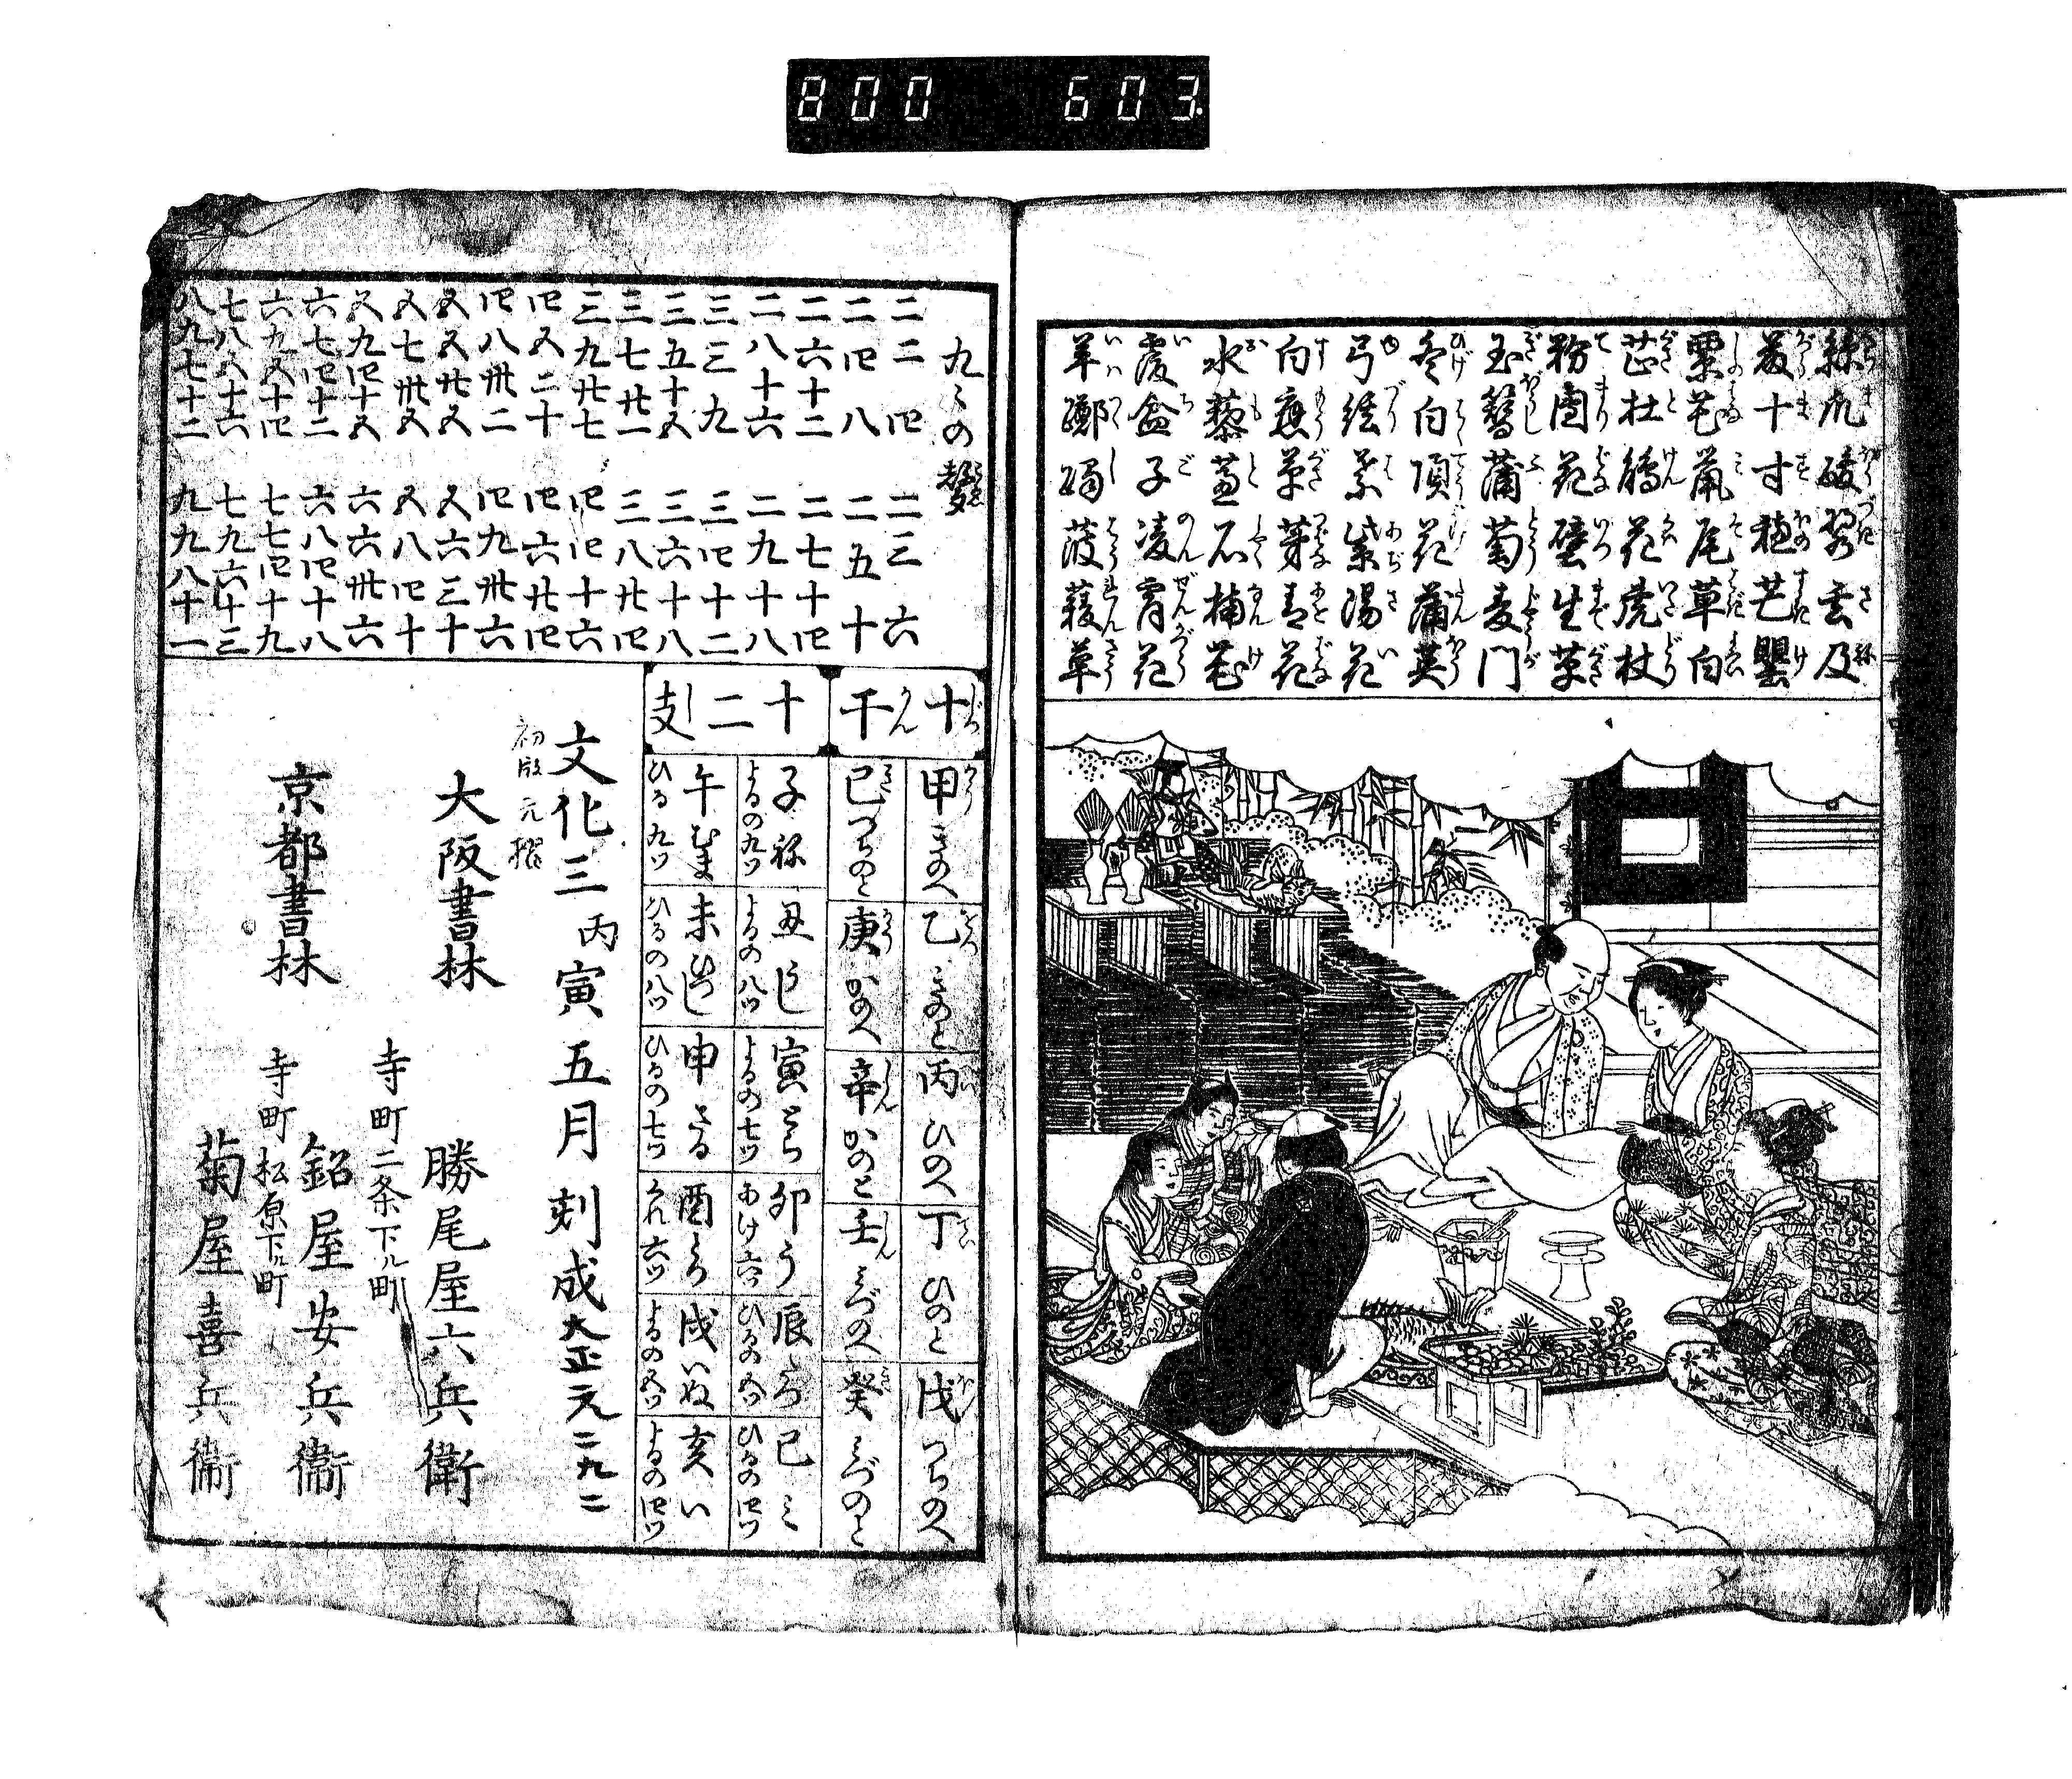 800 603.
絲瓜 破盌 委及
葭 十寸穂 芒 罌
粟花 鼠尾草 白
芷 杜鵑花 虎杖
粉團花 壁生草
玉簪 蒲萄 麦門
冬 白頂花 蒲英
弓絃葉 紫陽花
白慈草 芽 青花
水藜蘆 石楠花
覆盆子 凌霄花
羊躑躅 菠薐草
九〻の聲
二二四 二三六
二四八 二五十
二六十二 二七十四
二八十六 二九十八
三三九 三四十二
三五十五 三六十八
三七廿一 三八廿四
三九廿七 四四十六
四五二十 四六廿四
四八卅二 四九卅六
五五廿五 五六三十
五七卅五 五八四十
五九四十五 六六卅六
六七四十二 六八四十八
六九五十四 七七四十九
七八五十六 七九六十三
八九七十二 九九八十一
十干
甲 きのへ
乙 きのと
丙 ひのへ
丁 ひのと
戊 つちのへ
己 つちのと
庚 かのへ
辛 かのと
壬 みづのへ
癸 みづのと
十二支
子 ね よるの九ツ
丑 うし よるの八ツ
寅 とら よるの七ツ
卯 う あけ六ツ
辰 たつ ひるの五ツ
巳 み ひるの四ツ
午 むま ひる九ツ
未 ひつじ ひるの八ツ
申 さる ひるの七ツ
酉 とり くれ六ツ
戌 いぬ よるの五ツ
亥 い よるの四ツ
文化三丙寅五月刻成 大正元 二九二
初版元摺
大阪書林 勝尾屋六兵衛
京都書林
寺町二条下ル町 銭屋安兵衛
寺町松原下ル町 菊屋喜兵衛